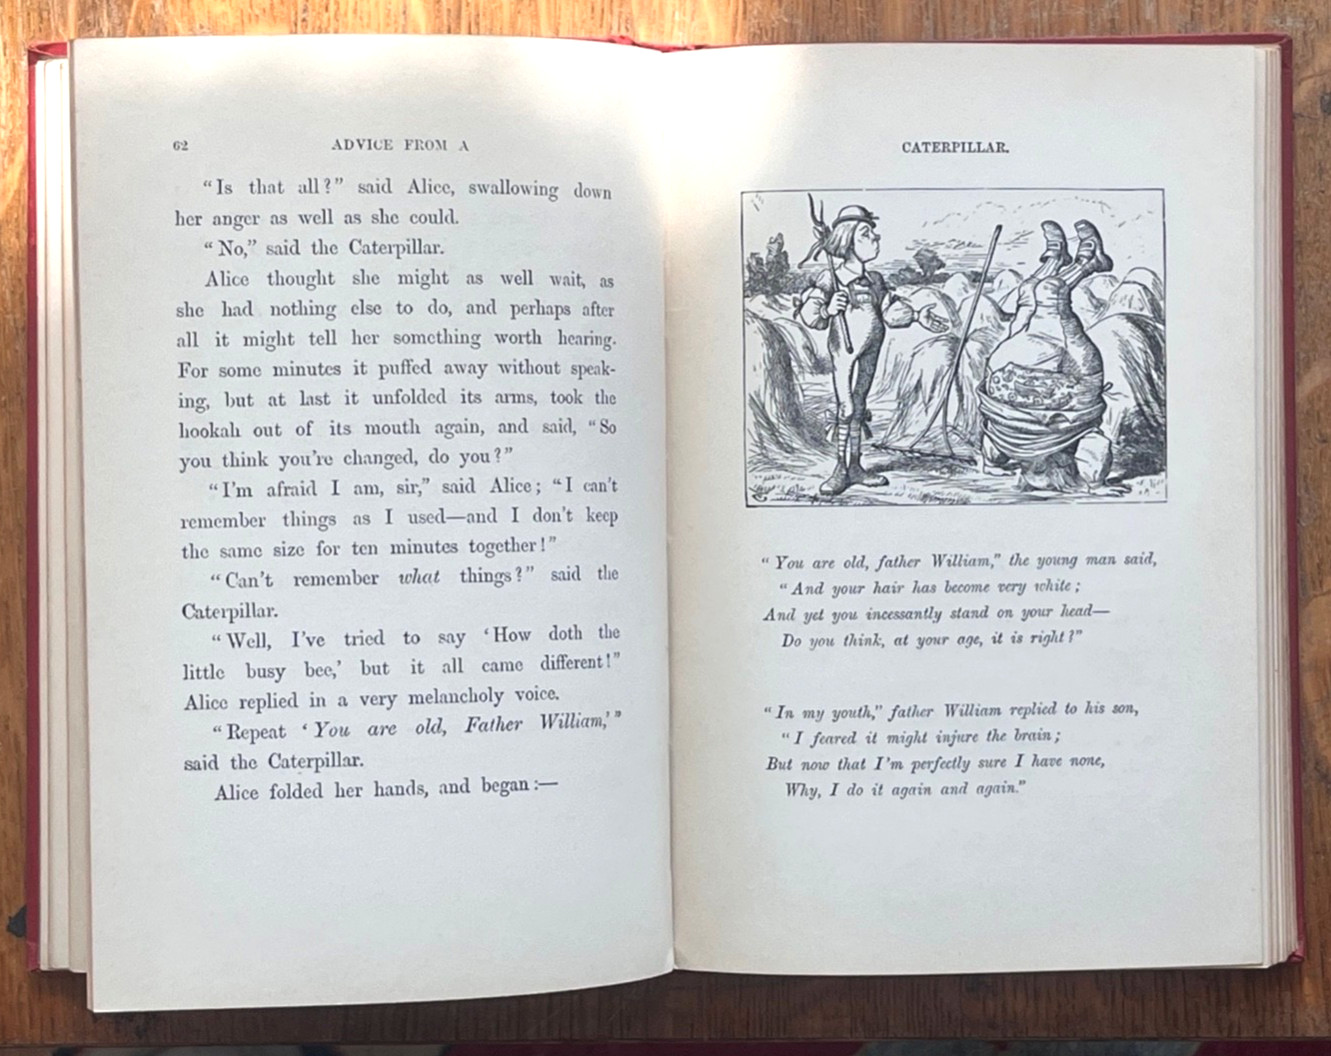 62 ADVICE FROM A
“Is that all?” said Alice, swallowing down
her anger as well as she could.
“No,” said the Caterpillar.
Alice thought she might as well wait, as
she had nothing else to do, and perhaps after
all it might tell her something worth hearing.
For some minutes it puffed away without speak-
ing, but at last it unfolded its arms, took the
hookah out of its mouth again, and said, “So
you think you’re changed, do you?”
“I’m afraid I am, sir,” said Alice; “I can’t
remember things as I used—and I don’t keep
the same size for ten minutes together!”
“Can’t remember what things?” said the
Caterpillar.
“Well, I’ve tried to say ‘How doth the
little busy bee,’ but it all came different!”
Alice replied in a very melancholy voice.
“Repeat ‘You are old, Father William,’”
said the Caterpillar.
Alice folded her hands, and began:—
CATERPILLAR.
“You are old, father William,” the young man said,
“And your hair has become very white;
And yet you incessantly stand on your head—
Do you think, at your age, it is right?”
“In my youth,” father William replied to his son,
“I feared it might injure the brain;
But now that I’m perfectly sure I have none,
Why, I do it again and again.”